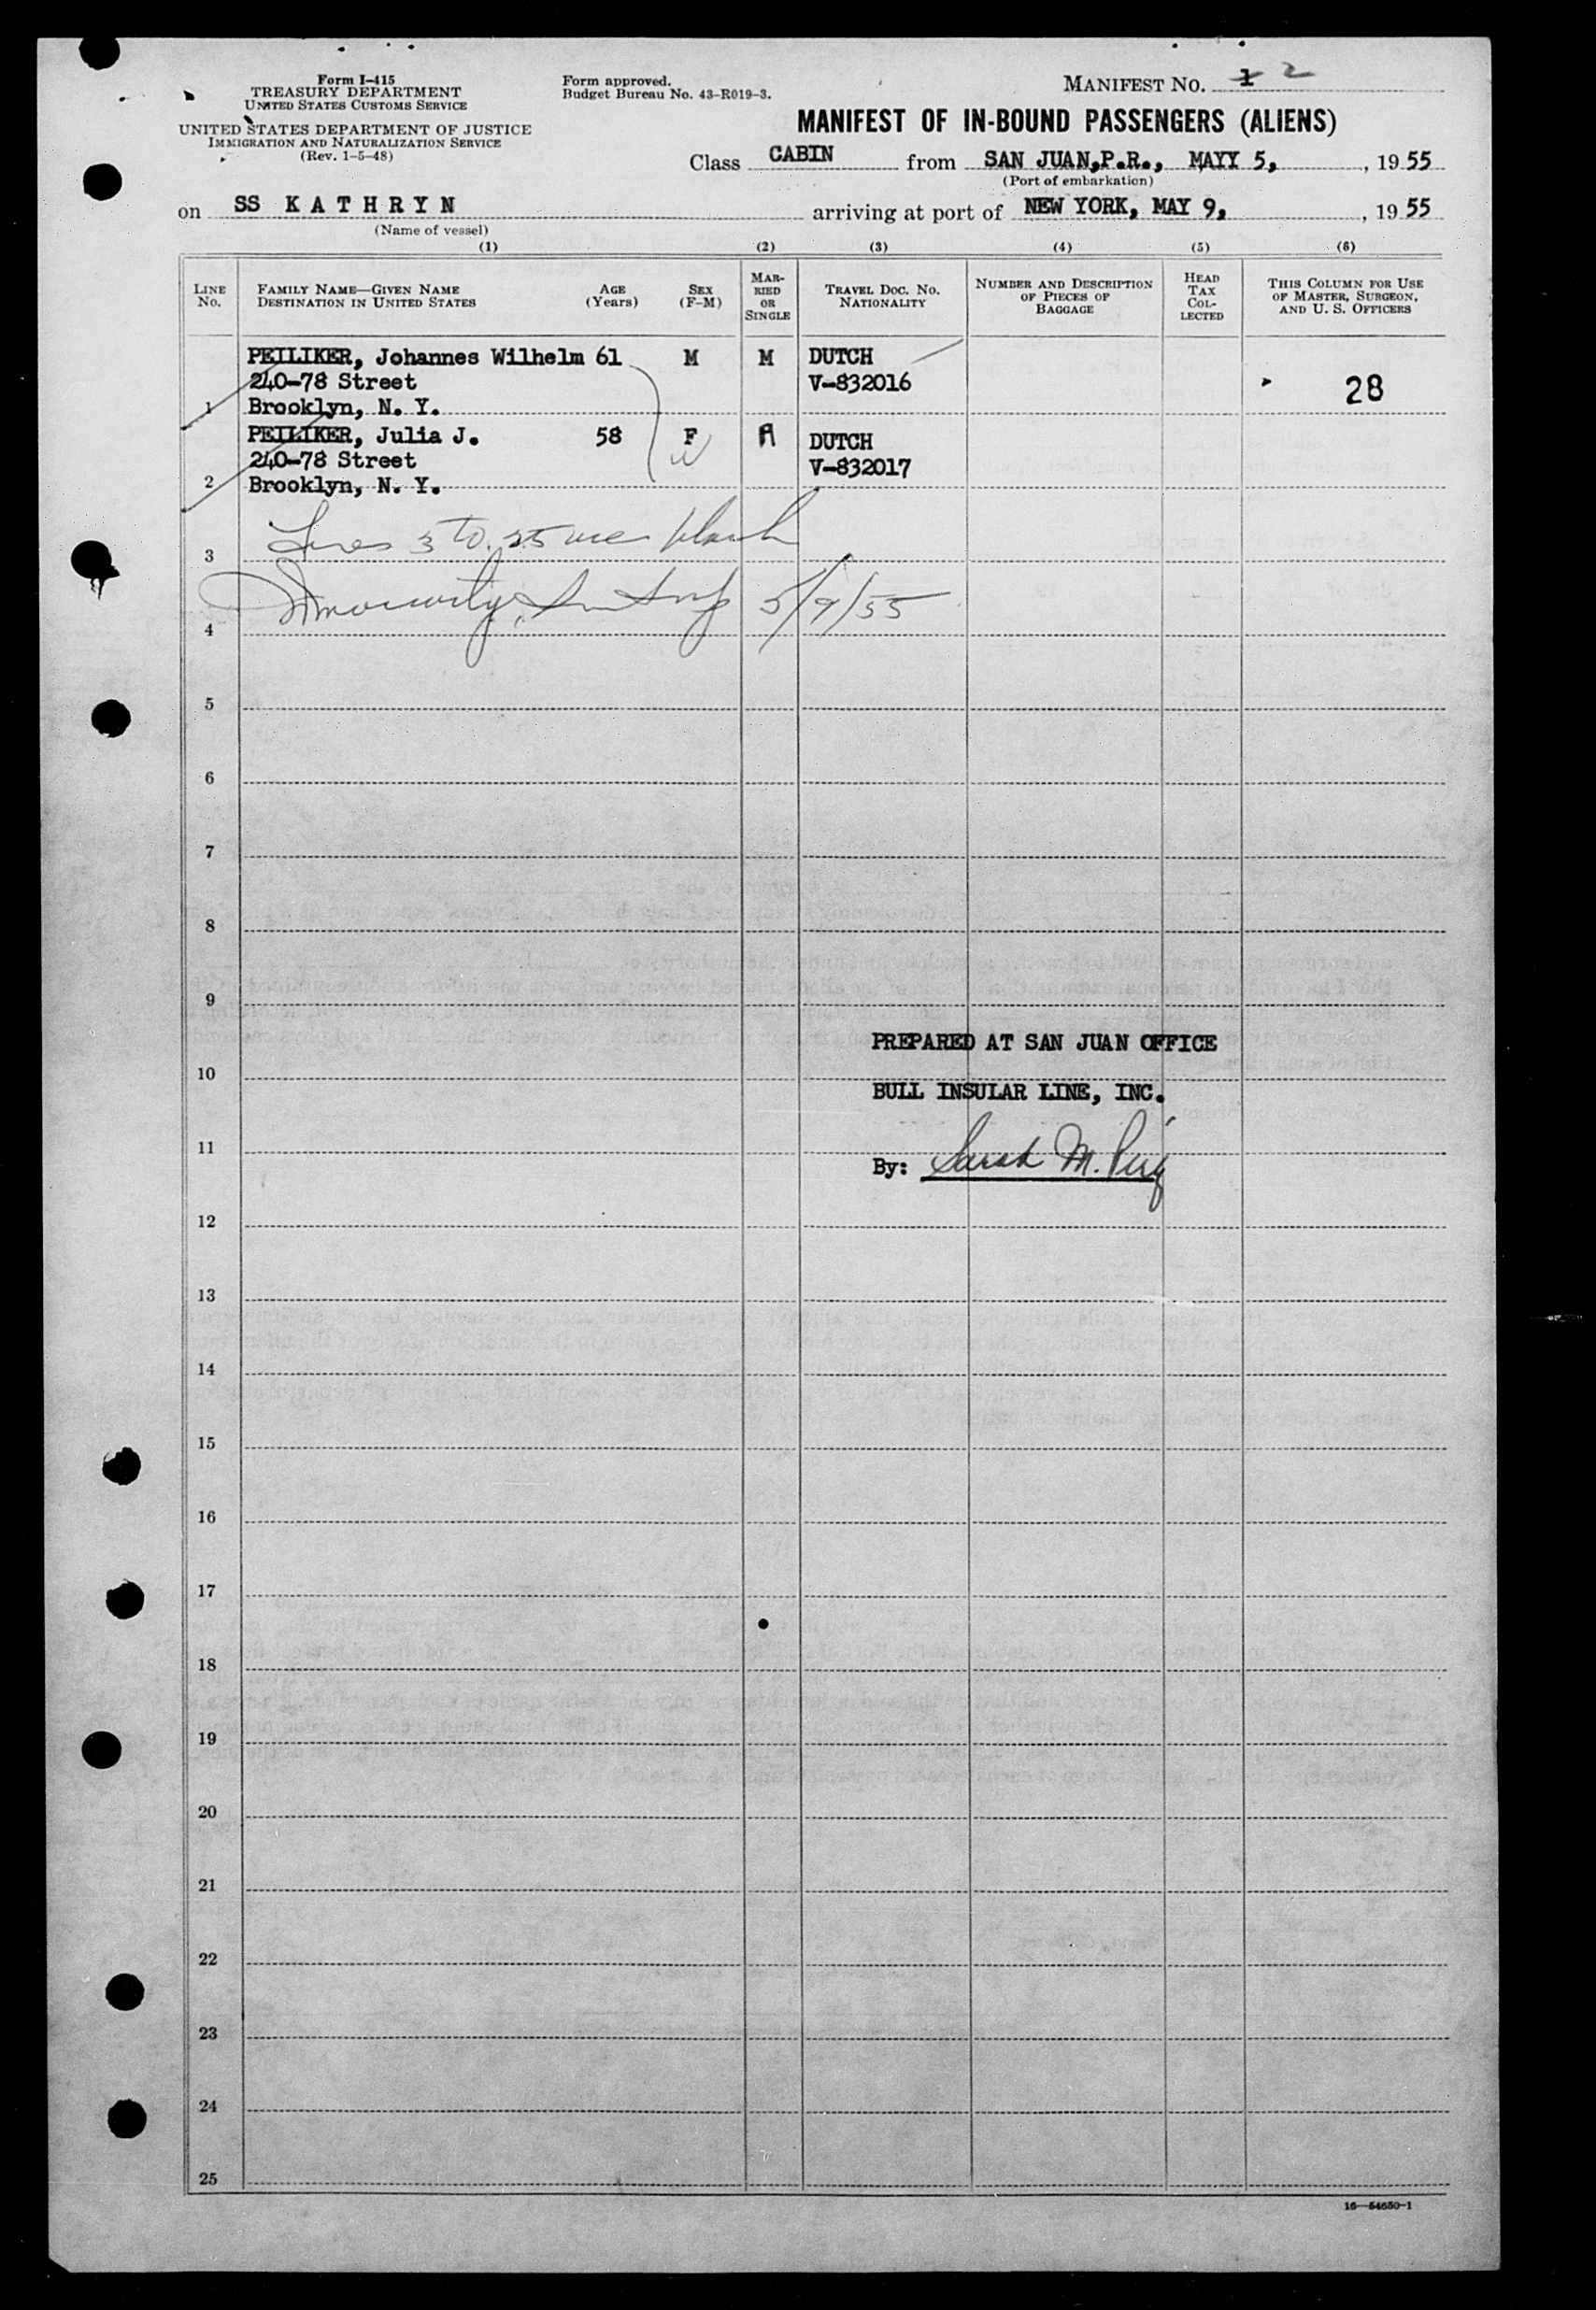 Form I-415
TREASURY DEPARTMENT
UNITED STATES CUSTOMS SERVICE
UNITED STATES DEPARTMENT OF JUSTICE
IMMIGRATION AND NATURALIZATION SERVICE
(Rev. 1-5-48)
Form approved.
Budget Bureau No. 43-R019-3.
MANIFEST NO. 1 2
MANIFEST OF IN-BOUND PASSENGERS (ALIENS)
Class CABIN from SAN JUAN,P.R., MAYY 5, , 19 55
(Port of embarkation)
on SS KATHRYN arriving at port of NEW YORK, MAY 9, , 19 55
(Name of vessel)
(1) (2) (3) (4) (5) (6)
LINE No.
FAMILY NAME—GIVEN NAME
DESTINATION IN UNITED STATES
AGE (Years)
SEX (F-M)
MARRIED OR SINGLE
TRAVEL DOC. NO.
NATIONALITY
NUMBER AND DESCRIPTION OF PIECES OF BAGGAGE
HEAD TAX COLLECTED
THIS COLUMN FOR USE OF MASTER, SURGEON, AND U. S. OFFICERS
PEILIKER, Johannes Wilhelm 61 M M DUTCH
240-78 Street V-832016 28
1 Brooklyn, N. Y.
PEILIKER, Julia J. 58 F M DUTCH
240-78 Street W V-832017
2 Brooklyn, N. Y.
3 Lines 3 to 25 are blank
4 5/9/55
5
6
7
8
9
PREPARED AT SAN JUAN OFFICE
10
BULL INSULAR LINE, INC.
11
By: Sarah M.
12
13
14
15
16
17
18
19
20
21
22
23
24
25
16—54650-1